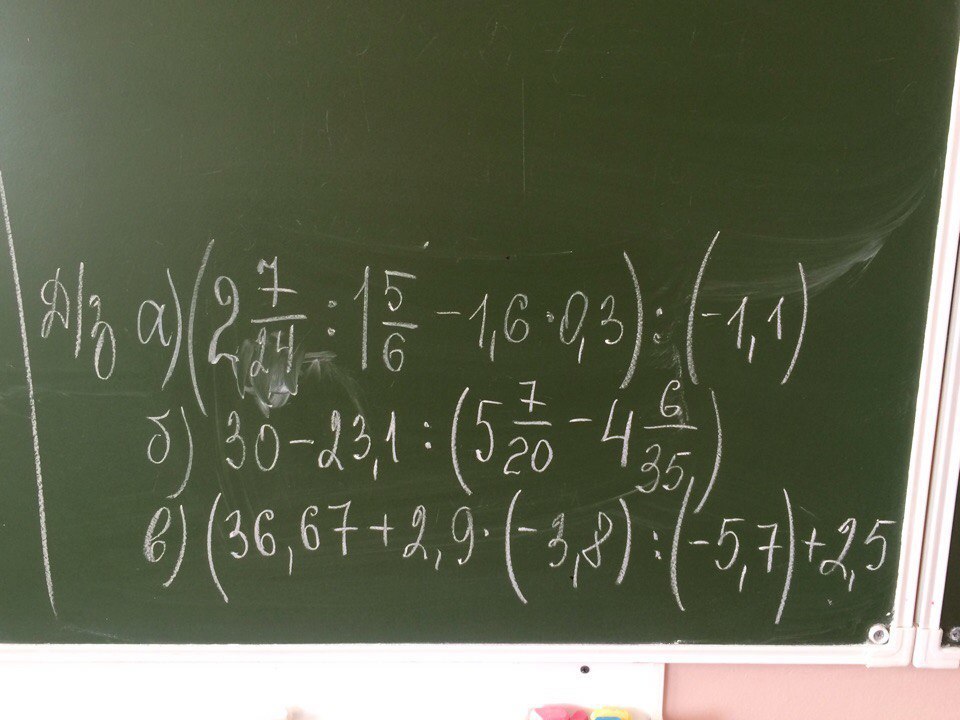 Д/з а) (2 7/24 : 1 5/6 - 1,6 · 0,3) : (-1,1)
б) 30 - 23,1 : (5 7/20 - 4 6/35)
в) (36,67 + 2,9 · (-3,8) : (-5,7) + 2,5